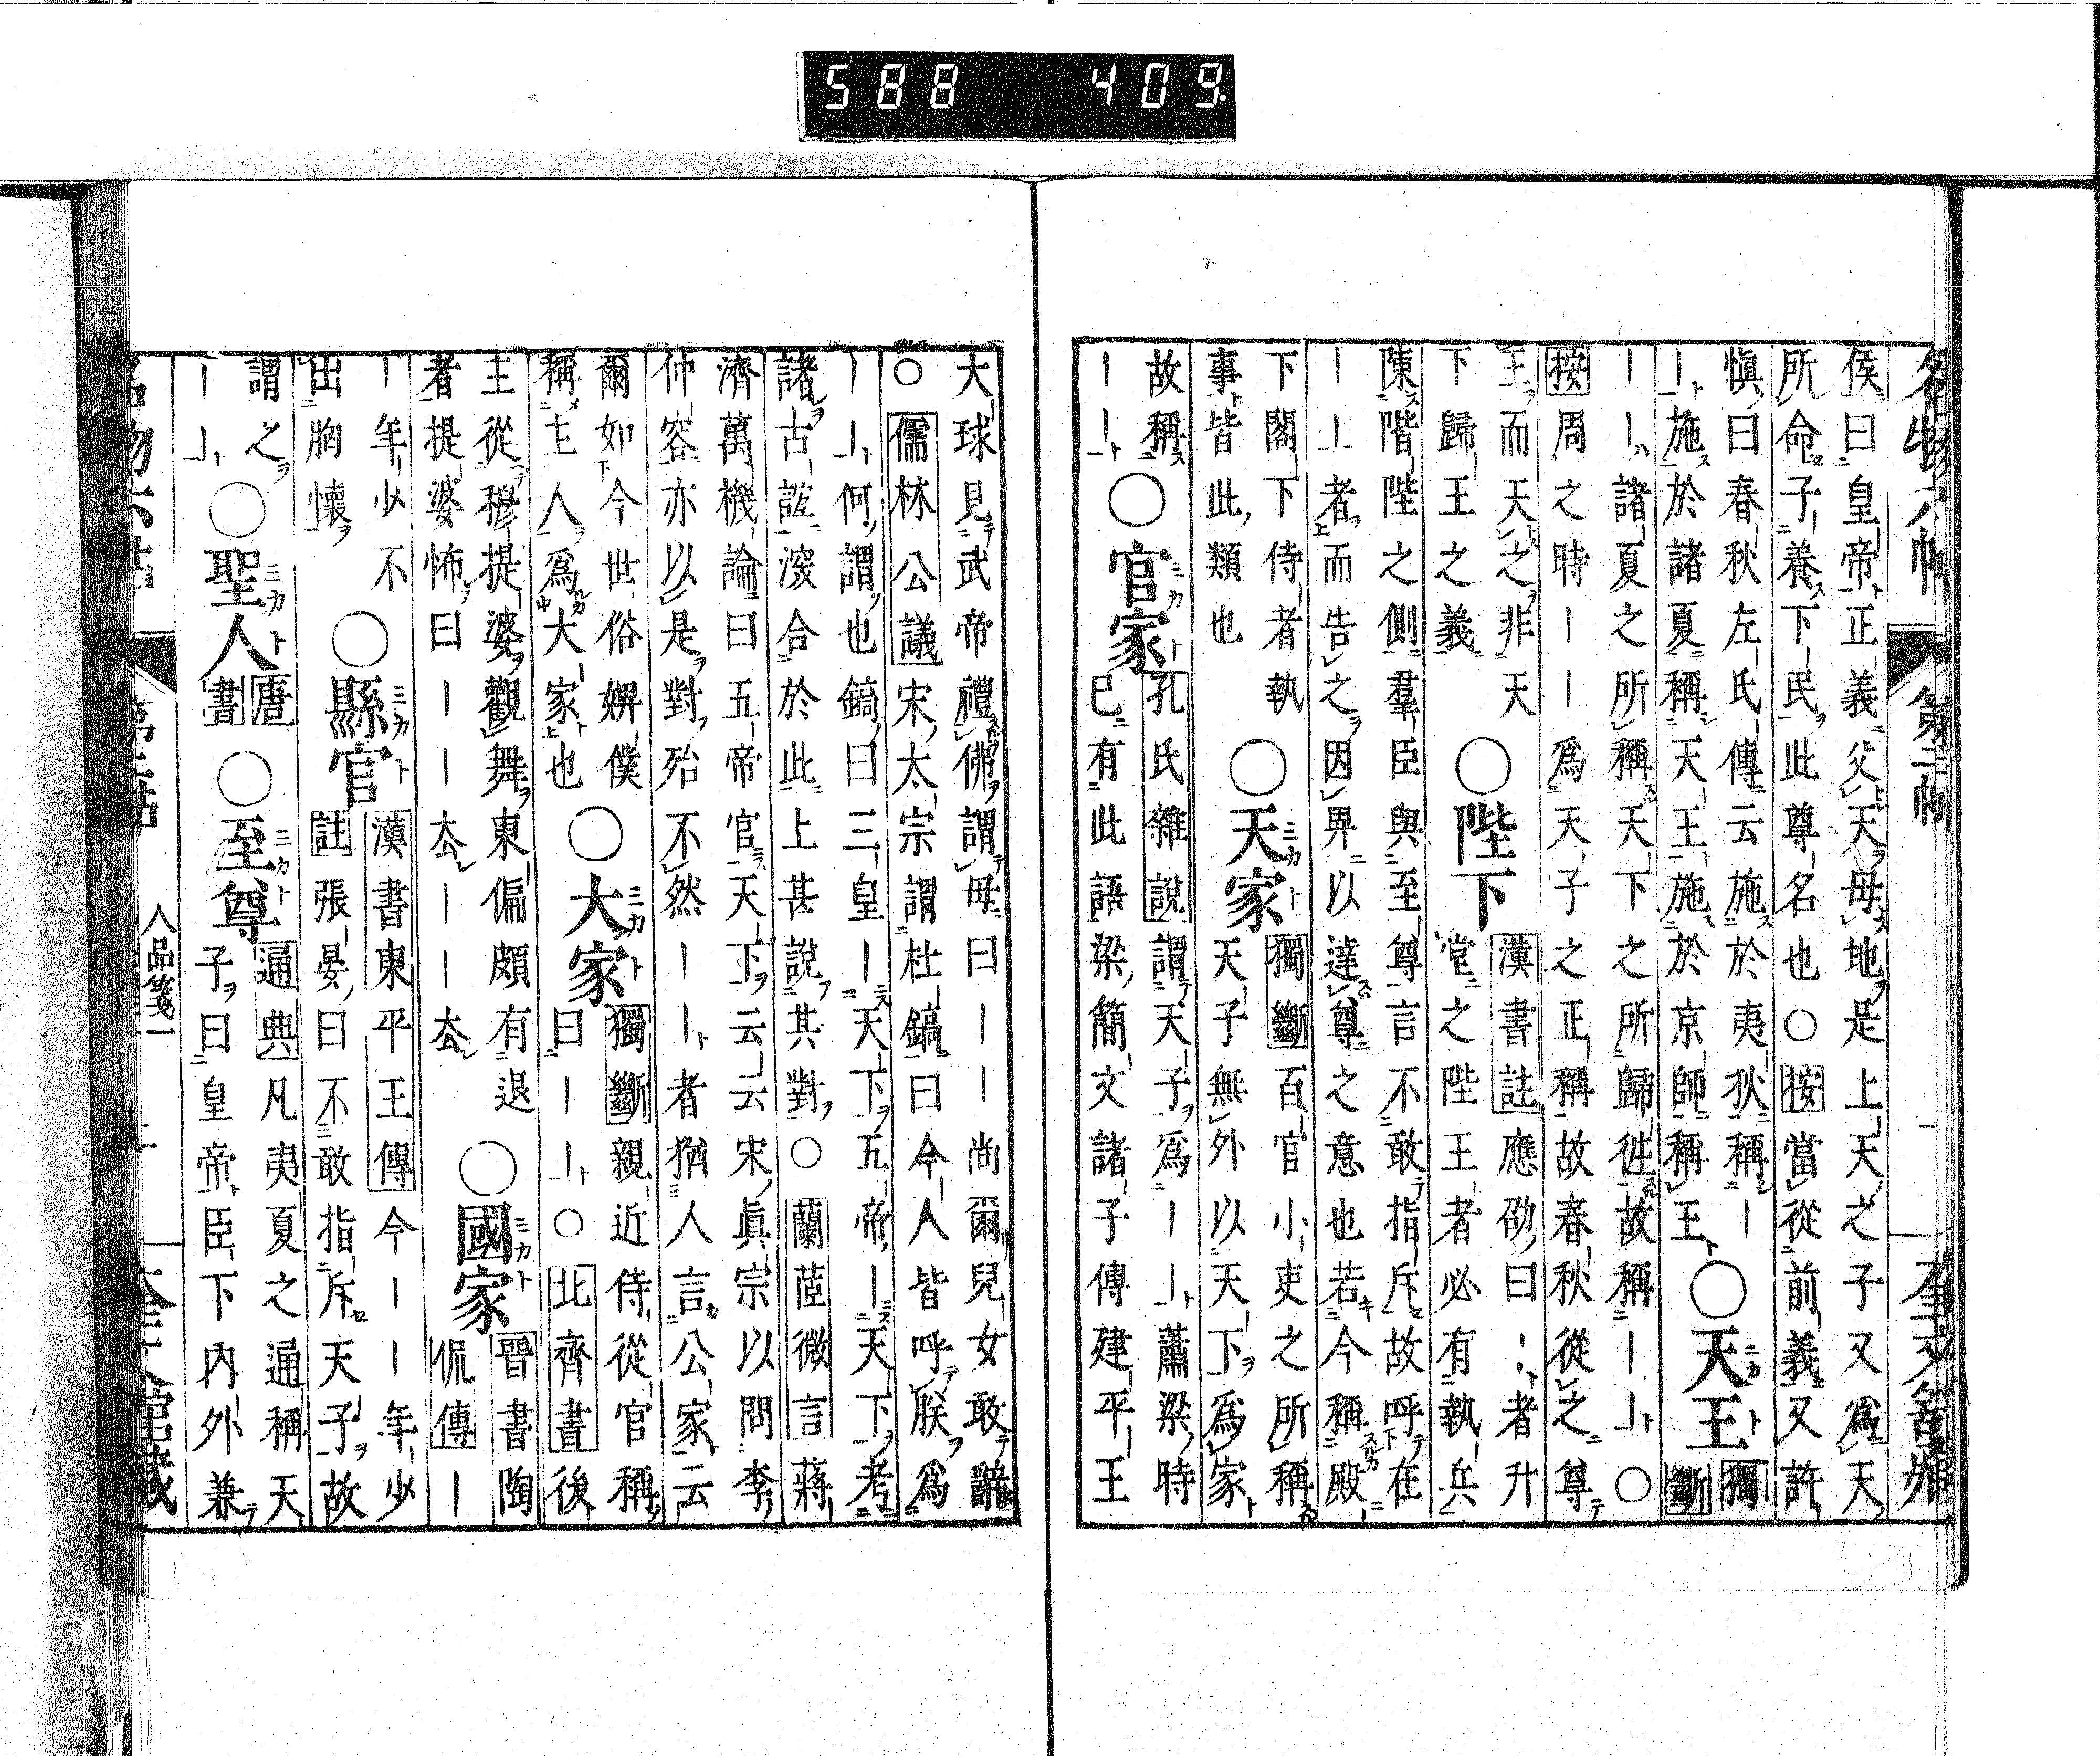 588 409.
名物六帖 第二帖 一 奎文舘藏
侯曰皇帝正義父天母地是上天之子又爲天
所命子養下民此尊名也○按當從前義又許
愼曰春秋左氏傳云施於夷狄稱｜
｜施於諸夏稱天王施於京師稱王○天王獨斷
｜｜諸夏之所稱天下之所歸徃故稱｜｜○
按周之時｜｜爲天子之正稱故春秋從之尊
王而天之非天
下歸王之義○陛下漢書註應劭曰｜｜者升
堂之陛王者必有執兵
陳階陛之側羣臣與至尊言不敢指斥故呼在
｜｜者而告之因畀以達尊之意也若今稱殿
下閣下侍者執
事皆此類也○天家獨斷百官小吏之所稱
天子無外以天下爲家
故稱
｜｜○官家孔氏雜說謂天子爲｜｜蕭梁時
已有此語梁簡文諸子傳建平王
大球見武帝禮佛謂母曰｜｜尚爾兒女敢辭
○儒林公議宋太宗謂杜鎬曰今人皆呼朕爲
｜｜何謂也鎬曰三皇｜天下五帝｜天下考
諸古誼深合於此上甚說其對○蘭莝微言蔣
濟萬機論曰五帝官天下云云宋眞宗以問李
仲容亦以是對殆不然｜｜者猶人言公家云
爾如今世俗婢僕
稱主人爲大家也○大家獨斷親近侍從官稱
曰｜｜○北齊書後
主從穆提婆觀舞東偏頗有退
者提婆怖曰｜｜去｜｜去○國家晉書陶
侃傳｜
｜年少不
出胸懷○縣官漢書東平王傳今｜｜年少
註張晏曰不敢指斥天子故
謂之
｜｜○聖人唐書○至尊通典凡夷夏之通稱天
子曰皇帝臣下內外兼
人品箋一